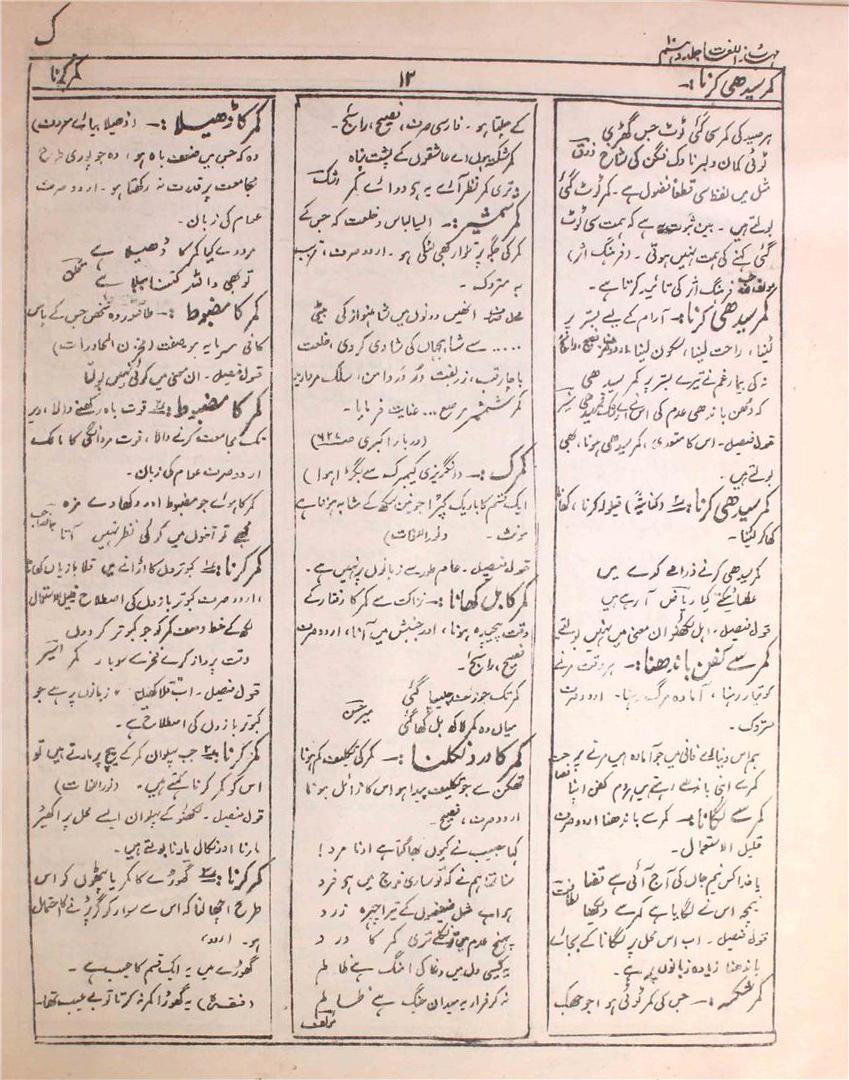 ک
مہذب اللغات جلد دہم
کمر سیدھی کرنا :-
۱۳
کمر کرنا
ہر صید کی کمر سی گئی ٹوٹ جس گھڑی
ٹوٹی کمان دلبر ناوک فگن کی شاخ ذوق
مثل میں لفظ سی قطعاً فضول ہے ۔ کمر ٹوٹ گئی
بولتے ہیں ۔ بین ثبوت یہ ہے کہ ہمت سی ٹوٹ
گئی کہنے کی ہمت نہیں ہوتی ۔ (فرہنگ اثر)
فرہنگ اثر کی تائید کرتا ہے ۔
کمر سیدھی کرنا :- آرام کے لیے بستر پر
لیٹنا ، راحت لینا ، سکون لینا ، اردو صرف فصیح ، رائج
نہ کی بیمار غم نے تیرے بستر پر کمر سیدھی
کہ دُھن باندھی عدم کی اس نے
قول فیصل ۔ اس کا متعدی ، کمر سیدھی ہونا ، بھی
بولتے ہیں ۔
کمر سیدھی کرنا :- ۲ (کنایۃً) قیلولہ کرنا ، کھانا
کھا کر لیٹنا ۔
کمر سیدھی کرنے ذرا میکدے میں
عصا ٹیکتے کیا ریاض آ رہے ہیں
قول فیصل ۔ اہل لکھنؤ ان معنی میں نہیں بولتے
کمر سے کفن باندھنا :- ہر وقت مرنے
کو تیار رہنا ، آمادہ مرگ رہنا ۔ اردو صرف
متروک ۔
ہم اس دنیائے فانی میں جو آمادہ ہیں مرنے پر
کمر سے اپنی باندھے رہتے ہیں ہر دم کفن اپنا
کمر سے لگانا :- کمر سے باندھنا اردو صرف
قلیل الاستعمال ۔
یا خدا کس نیم جاں کی آج آئی ہے قضا
نیمچہ اس نے لگایا ہے کمر سے دیکھنا
قول فیصل ۔ اب اس محل پر لگانا کے بجائے
باندھنا زیادہ زبانوں پر ہے ۔
کمر شکستہ :- جس کی کمر ٹوٹی ہو ، جو جھک
کے چلتا ہو ۔ فارسی صرف ، فصیح ، رائج ۔
کمر شکستہ ہوں اے عاشقوں کے پشت پناہ
تری کمر نظر آئے یہ ہے دوائے کمر اشک
کمر شمشیر :- ایسا لباس و خلعت کہ جس کے
کمر کی جگہ پر تلوار بھی لٹکی ہو ۔ اردو صرف ، قریب
بہ متروک ۔
محل صرف انھیں دونوں میں شاہنواز کی بیٹی
..... سے شاہجہاں کی شادی کر دی ، خلعت
با چارقب ، زربفت در دامن ، سلک مروارید
کمر شمشیر مرصع ... عنایت فرمایا ۔
(دربار اکبری صـ ۶۲۷)
کمرک :- (انگریزی کیمبرک سے بگڑا ہوا)
ایک قسم کا باریک کپڑا جو نین سکھ کے مشابہ ہوتا ہے
مونث ۔ (نور اللغات)
قول فیصل ۔ عام طور سے زبانوں پر نہیں ہے ۔
کمر کا بل کھانا :- نزاکت سے کمر کا رفتار کے
وقت پیچیدہ ہونا ، اور جنبش میں آنا ، اردو صرف
فصیح ، رائج ۔
کمر تک جو زلف چلیپا گئی
میاں وہ کمر لاکھ بل کھا گئی میر حسن
کمر کا درد نکلنا :- کمر کی تکلیف کم ہونا
تھکن سے جو تکلیف پیدا ہو اس کا زائل ہونا
اردو صرف ، فصیح ۔
کہا حبیب نے کیوں بھاگتا ہے اذنا مرد !
سنا تھا ہم نے کہ تو ساری فوج میں ہے فرد
ہوا ہے مثل ضعیفوں کے تیرا چہرہ زرد
پہنچ عدم میں تو نکلے تری کمر کا درد
یہ کیسی دل میں وغا کی امنگ ہے ظالم
نہ کر فرار یہ میدان جنگ ہے ظالم
مؤلف
کمر کا ڈھیلا :- (ڈھیلا بیائے معروف)
وہ کہ جس میں ضعف باہ ہو ، وہ جو پوری طرح
مجامعت پر قدرت نہ رکھتا ہو ۔ اردو صرف
عوام کی زبان ۔
مردوے کیا کمر کا ڈھیلا ہے
تو بھی واللہ کتنا
کمر کا مضبوط :- طاقتور وہ شخص جس کے پاس
کافی سرمایہ ہو صفت (مخزن المحاورات)
قول فیصل ۔ ان معنی میں کوئی نہیں بولتا
کمر کا مضبوط ۲ :- قوت باہ رکھنے والا ، دیر
تک مجامعت کرنے والا ، قوت مردانگی کا مالک
اردو صرف عوام کی زبان ۔
کمر کا ہوئے جو مضبوط اور دکھا دے مزہ
مجھے تو آخوں میں کوئی نظر نہیں آتا جانصاحب
کمر کرنا :- ۱ کبوتر دل کا اڑانے میں قلابازیاں کھانا
، اردو صرف کبوتر بازوں کی اصطلاح قلیل الاستعمال
لکھ کے خط وصف کمر کو جو کبوتر کر دوں
وقت پرواز کرے نخرے سو بار کمر اسیر
قول فیصل ۔ اب زبانوں پر ہے جو
کبوتر بازوں کی اصطلاح ہے ۔
کمر کرنا ۲ :- جب پہلوان کمر کے پیچ پر مارتے ہیں تو
اس کو کمر کرنا کہتے ہیں ۔ (نور اللغات)
قول فیصل ۔ لکھنؤ کے پہلوان ایسے محل پر اکھیڑ
مارنا اور نکال مارنا بولتے ہیں ۔
کمر کرنا :- ۳ گھوڑے کا کمر یا پٹھوں کو اس
طرح اچھالنا کہ اس سے سوار کو گر پڑنے کا احتمال
ہو ۔ اردو ۔
گھوڑے میں یہ ایک قسم کا عیب ہے ۔
(فقرہ) یہ گھوڑا کمر نہ کرتا تو بے عیب تھا ۔